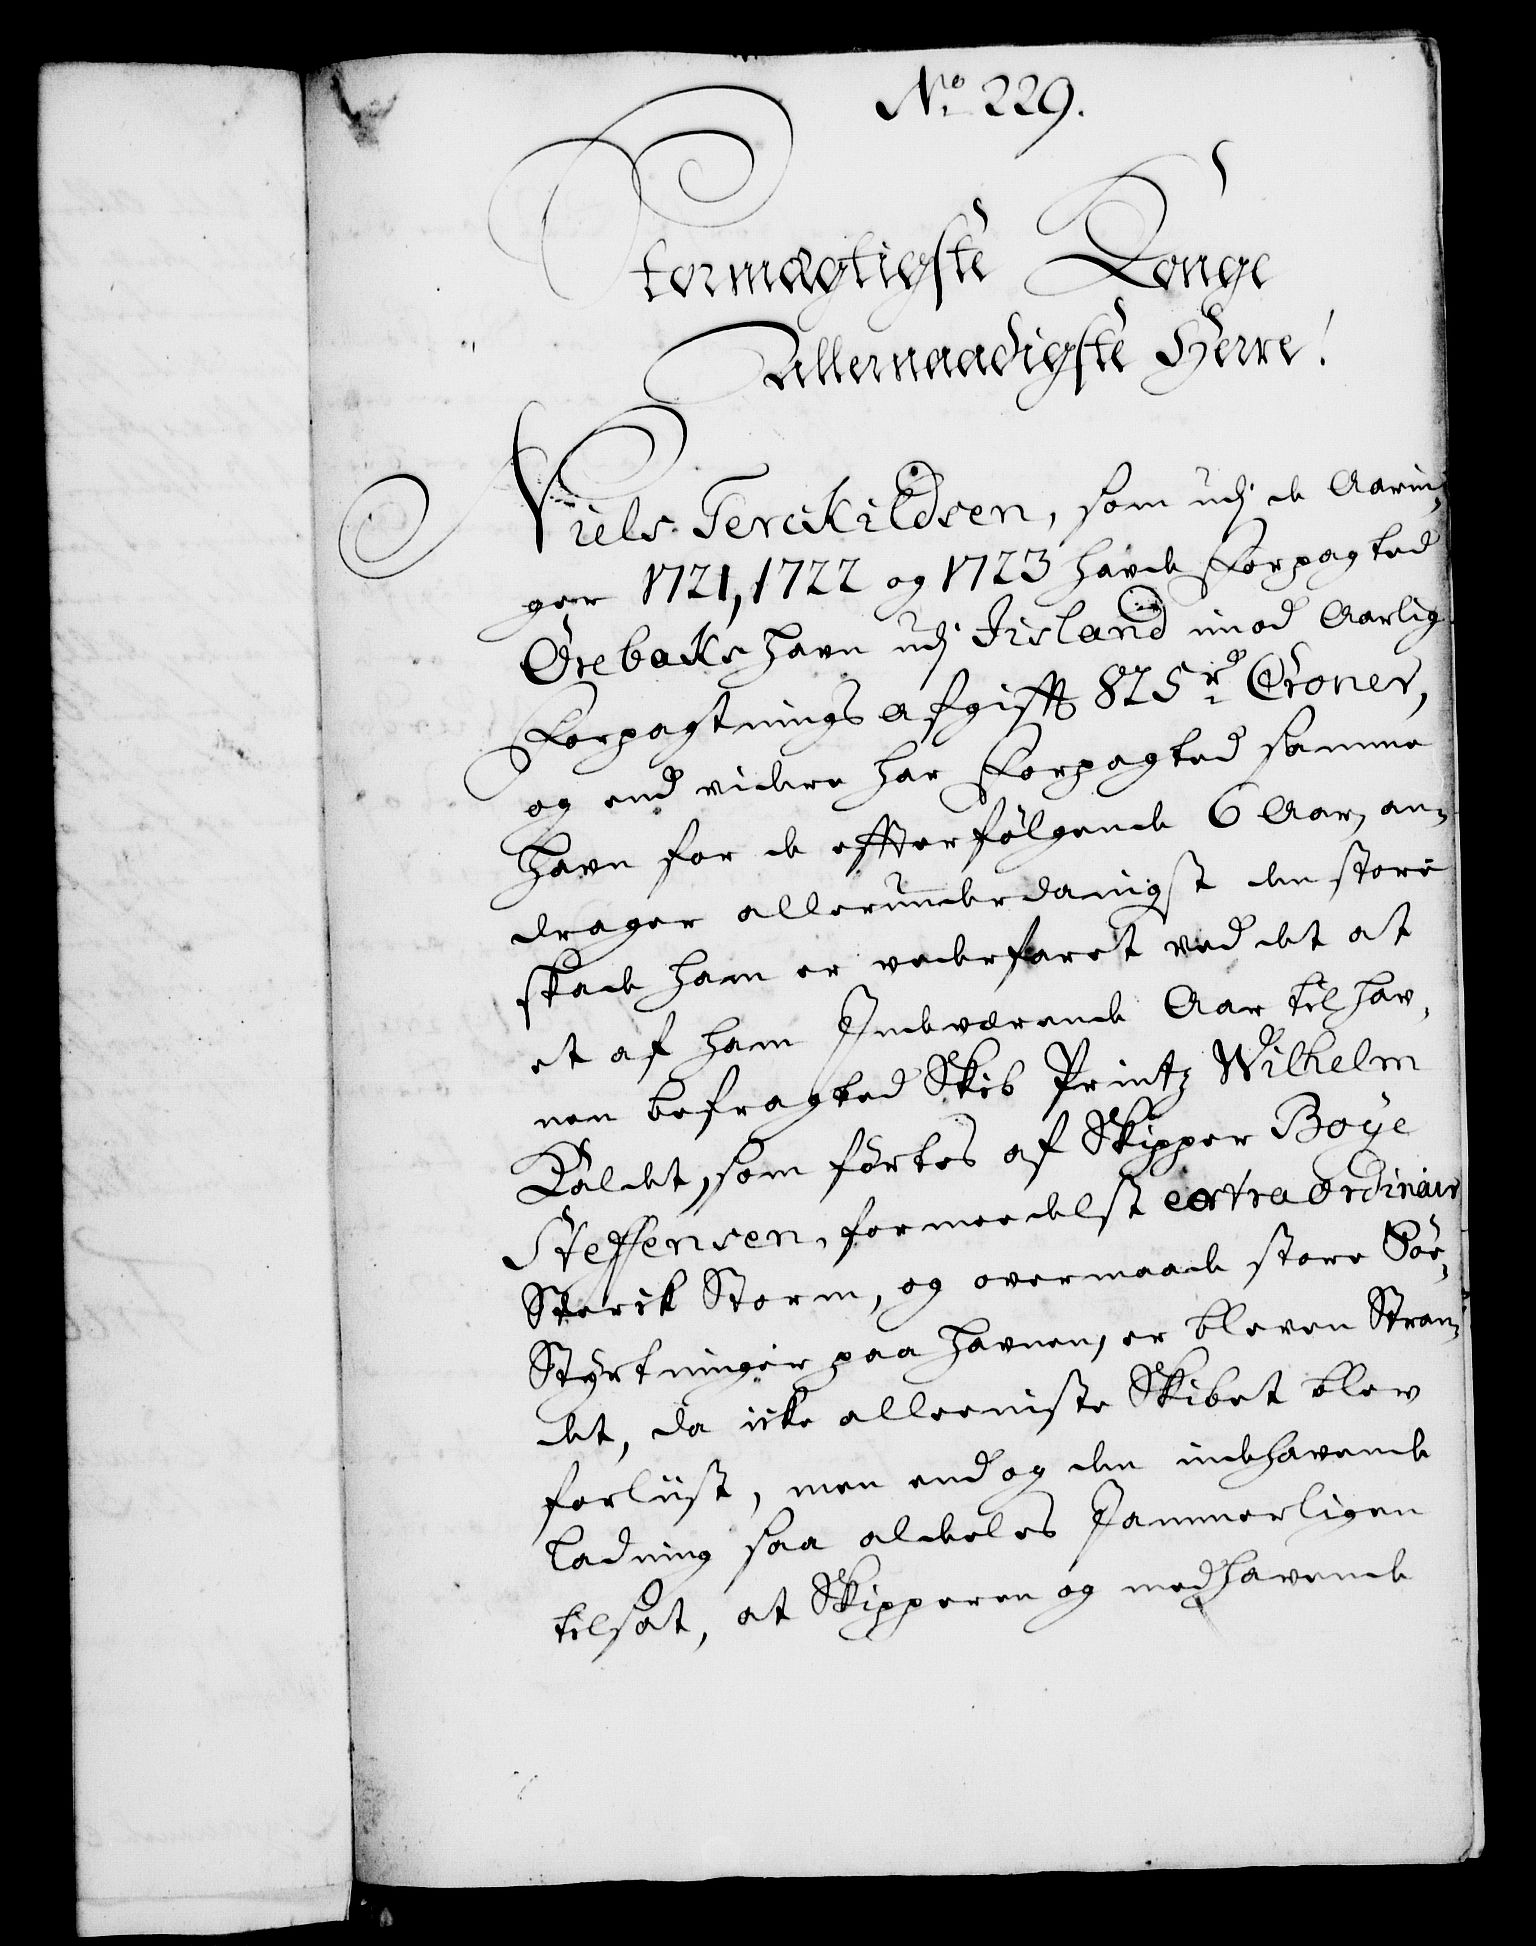 No. 229.
Stormægtigste Konge
Allernaadigste Herre!
Niels Terckildsen, som udj de Aarin,
ger 1721, 1722 og 1723 havde Forpagted
Örebaks havn udj Iisland imod Aarlig
Forpagtnings afgifft 825 rd Croner,
og end videre har Forpagted samme
havn for de effterfölgende 6 Aar, an-
drager allerunderdanigst den store
skade ham er vederfaret ved det at
et af ham Indeværende Aar til hav,
nen befragted Skib Printz Wilhelm
Kaldet, som förtes af Skipper Boye
Steffensen, formeedelst extraordinair
Sterck Storm, og overmaade store Söe,
Styrtninger paa havnen, er bleven Stran,
det, da icke alleeniste Skibet blev
forliist, men end og den indehavende
ladning saa aldeles Jammerligen
tilsat, at Skipperen og medhavende